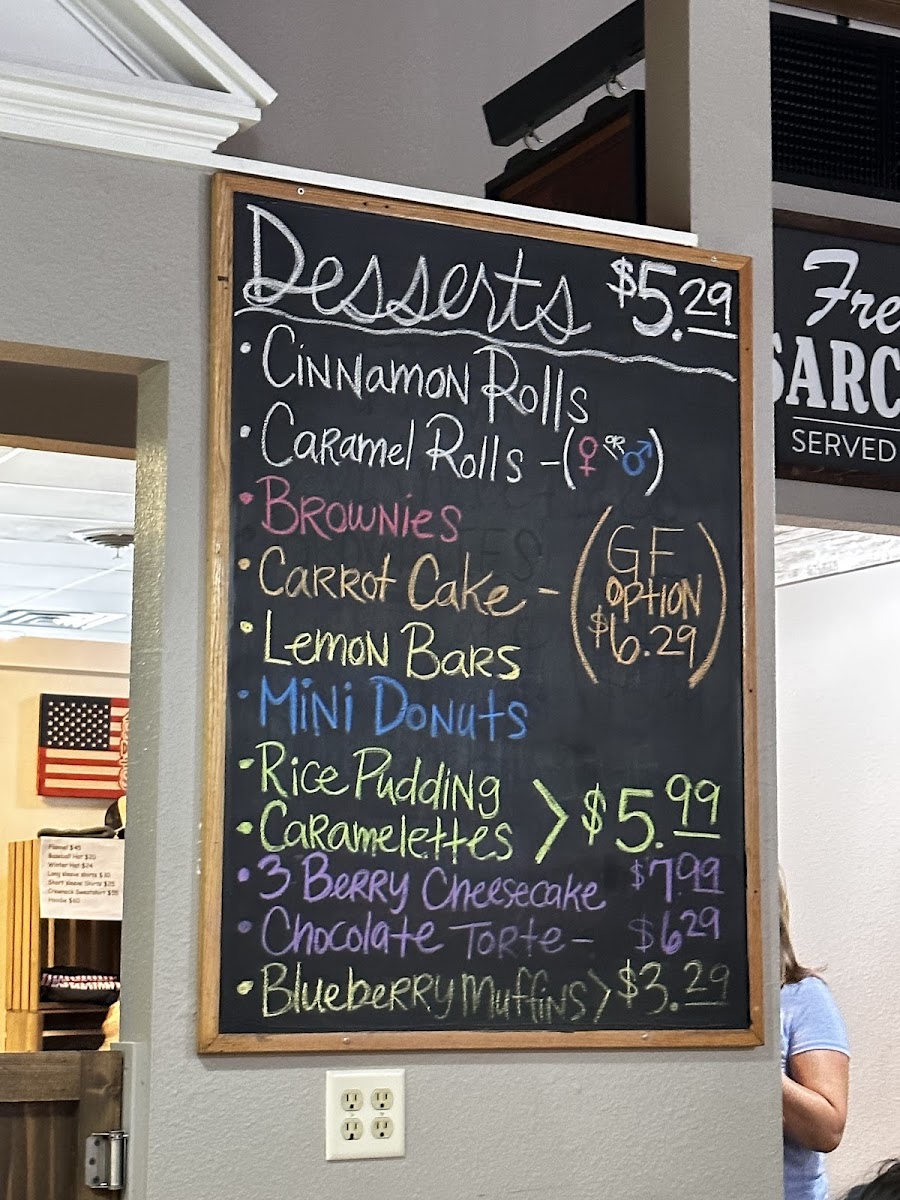 Desserts $5.29
• Cinnamon Rolls
• Caramel Rolls - (♀ OR ♂)
• Brownies
• Carrot Cake - (GF OPTION $6.29)
• Lemon Bars
• Mini Donuts
• Rice Pudding
• Caramelettes > $5.99
• 3 Berry Cheesecake $7.99
• Chocolate Torte - $6.29
• Blueberry Muffins > $3.29
Fre
SARC
SERVED
Flannel $45
Baseball Hat $20
Winter Hat $24
Long sleeve shirts $30
Short Sleeve Shirts $25
Hoodie $60